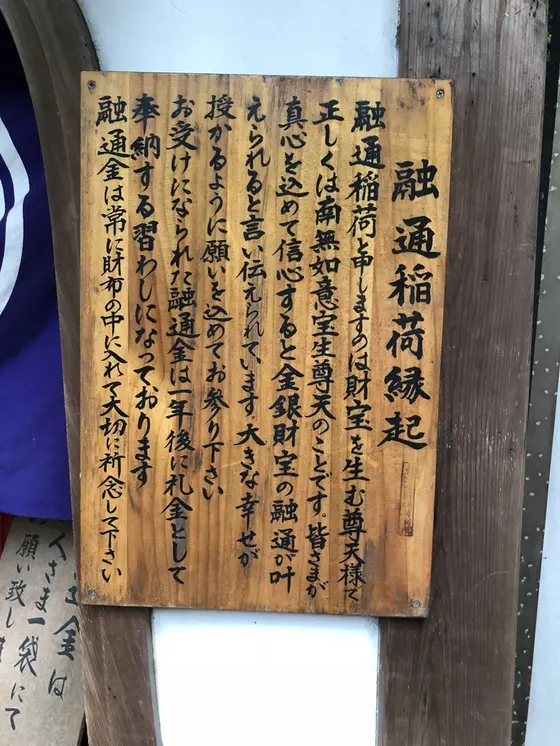 融通稲荷縁起
融通稲荷と申しますのは財宝を生む尊天様で
正しくは南無如意宝生尊天のことです。皆さまが
真心を込めて信心すると金銀財宝の融通が叶
えられると言い伝えられています大きな幸せが
授かるように願いを込めてお参り下さい
お受けになられた融通金は一年後に礼金として
奉納する習わしになっております
融通金は常に財布の中に入れて大切に祈念して下さい
金は
さま一袋にて
願い致し